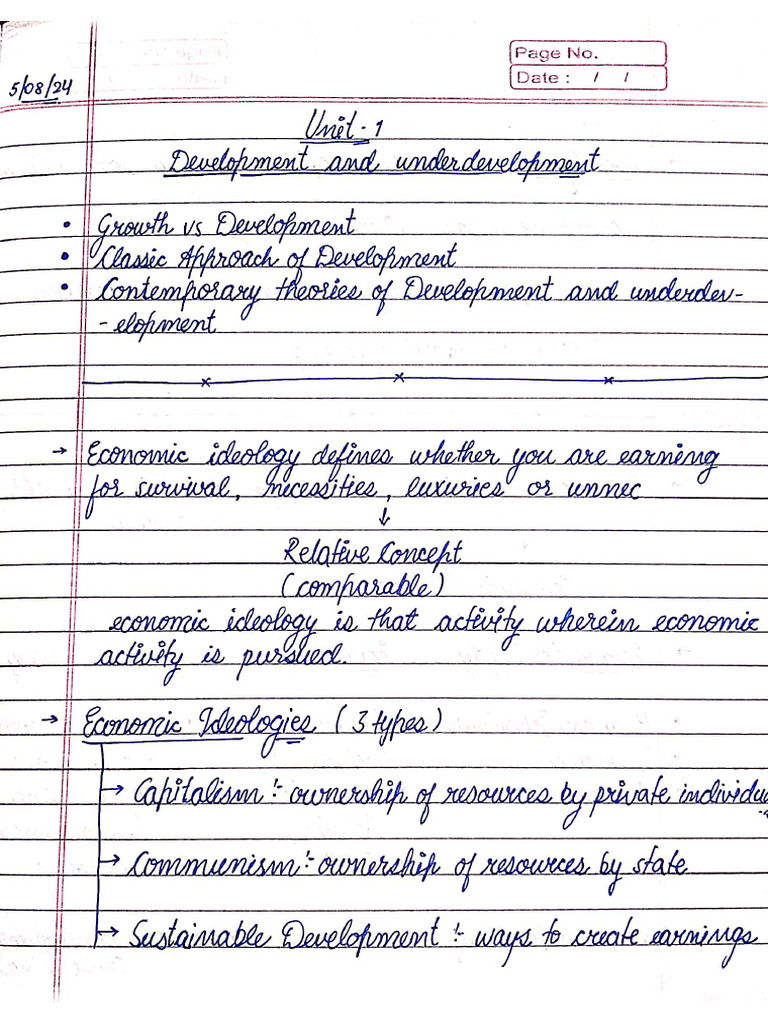 Page No.
Date : / /
5/08/24
Unit-1
Development and underdevelopment
• Growth vs Development
• Classic Approach of Development
• Contemporary theories of Development and underdev-
- elopment
→ Economic ideology defines whether you are earning
for survival, necessities, luxuries or unnec
↓
Relative Concept
(comparable)
economic ideology is that activity wherein economic
activity is pursued.
→ Economic Ideologies (3 types)
→ Capitalism :- ownership of resources by private individu
→ Communism :- ownership of resources by state
→ Sustainable Development :- ways to create earnings